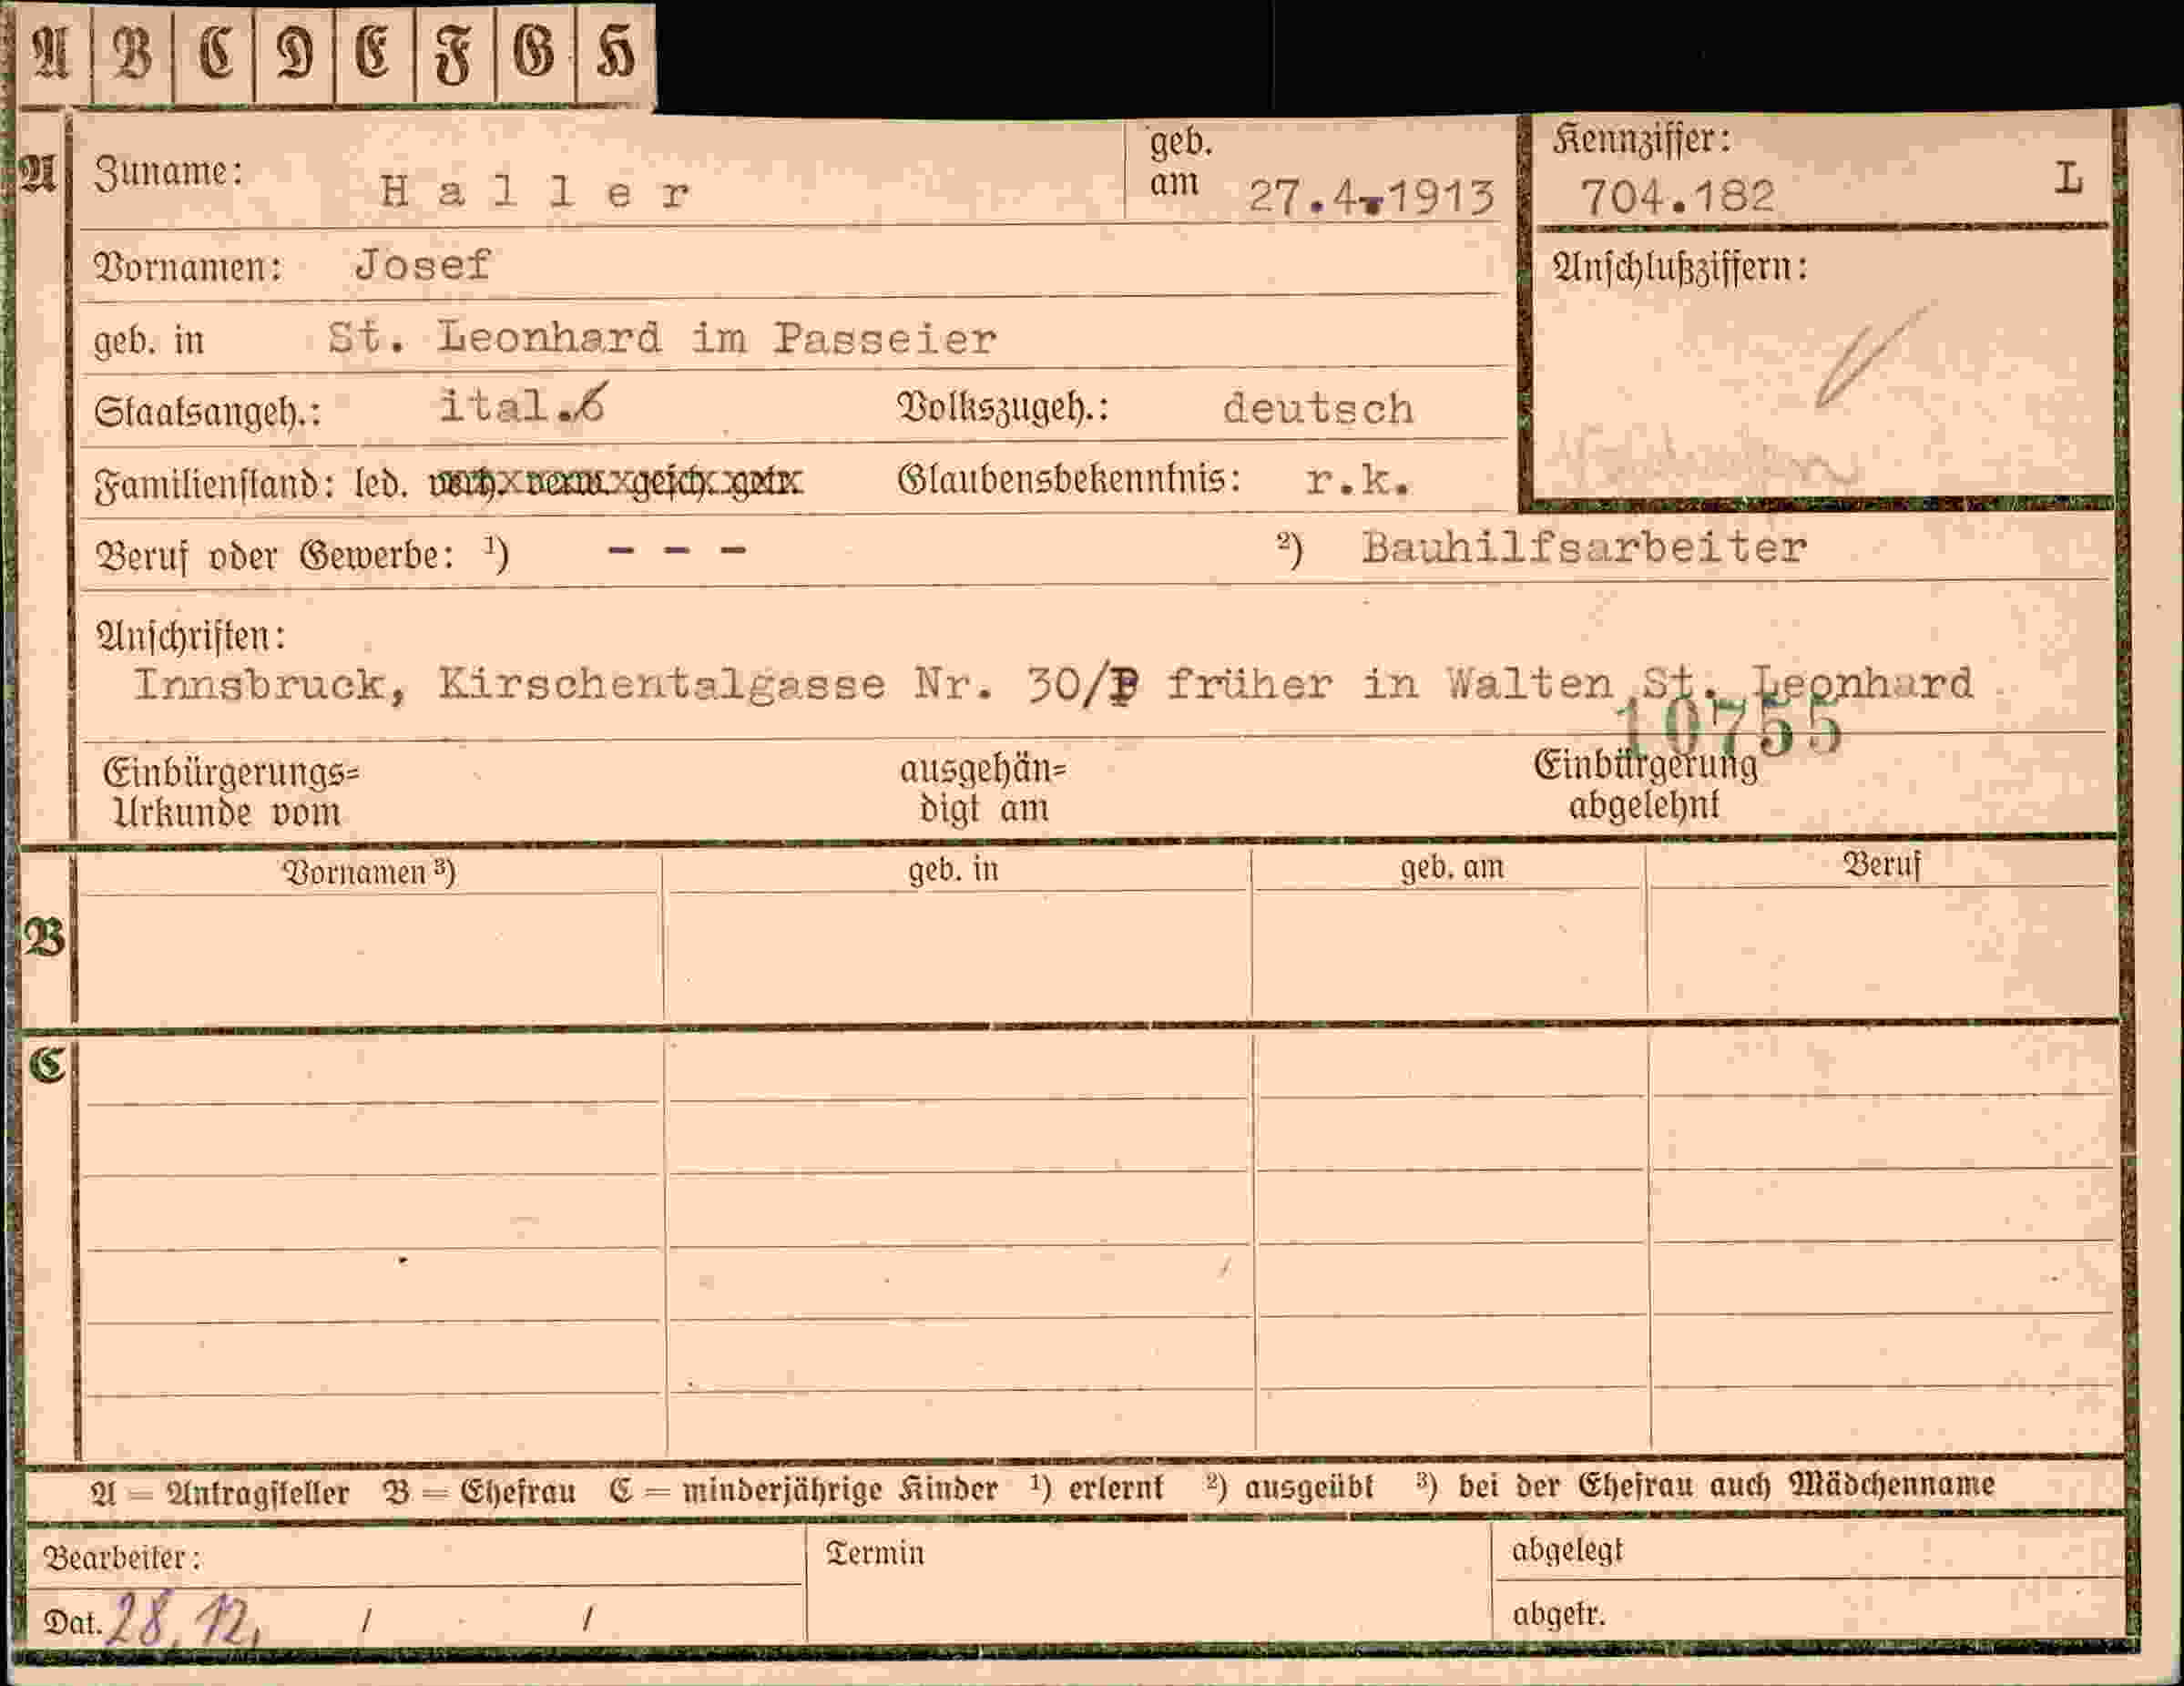 A B C D E F G H
A Zuname: Haller geb. am 27.4.1913 Kennziffer: 704.182 L
Vornamen: Josef Anschlußziffern:
geb. in St. Leonhard im Passeier
Staatsangeh.: ital. Volkszugeh.: deutsch
Familienstand: led. verh. verw. gesch. getr. Glaubensbekenntnis: r.k.
Beruf oder Gewerbe: ¹) - - - ²) Bauhilfsarbeiter
Anschriften:
Innsbruck, Kirschentalgasse Nr. 30/P früher in Walten St. Leonhard
10755
Einbürgerungs= ausgehän= Einbürgerung
Urkunde vom digt am abgelehnt
Vornamen ³) geb. in geb. am Beruf
B
C
A = Antragsteller B = Ehefrau C = minderjährige Kinder ¹) erlernt ²) ausgeübt ³) bei der Ehefrau auch Mädchenname
Bearbeiter: Termin abgelegt
Dat. 28.12. / / abgetr.